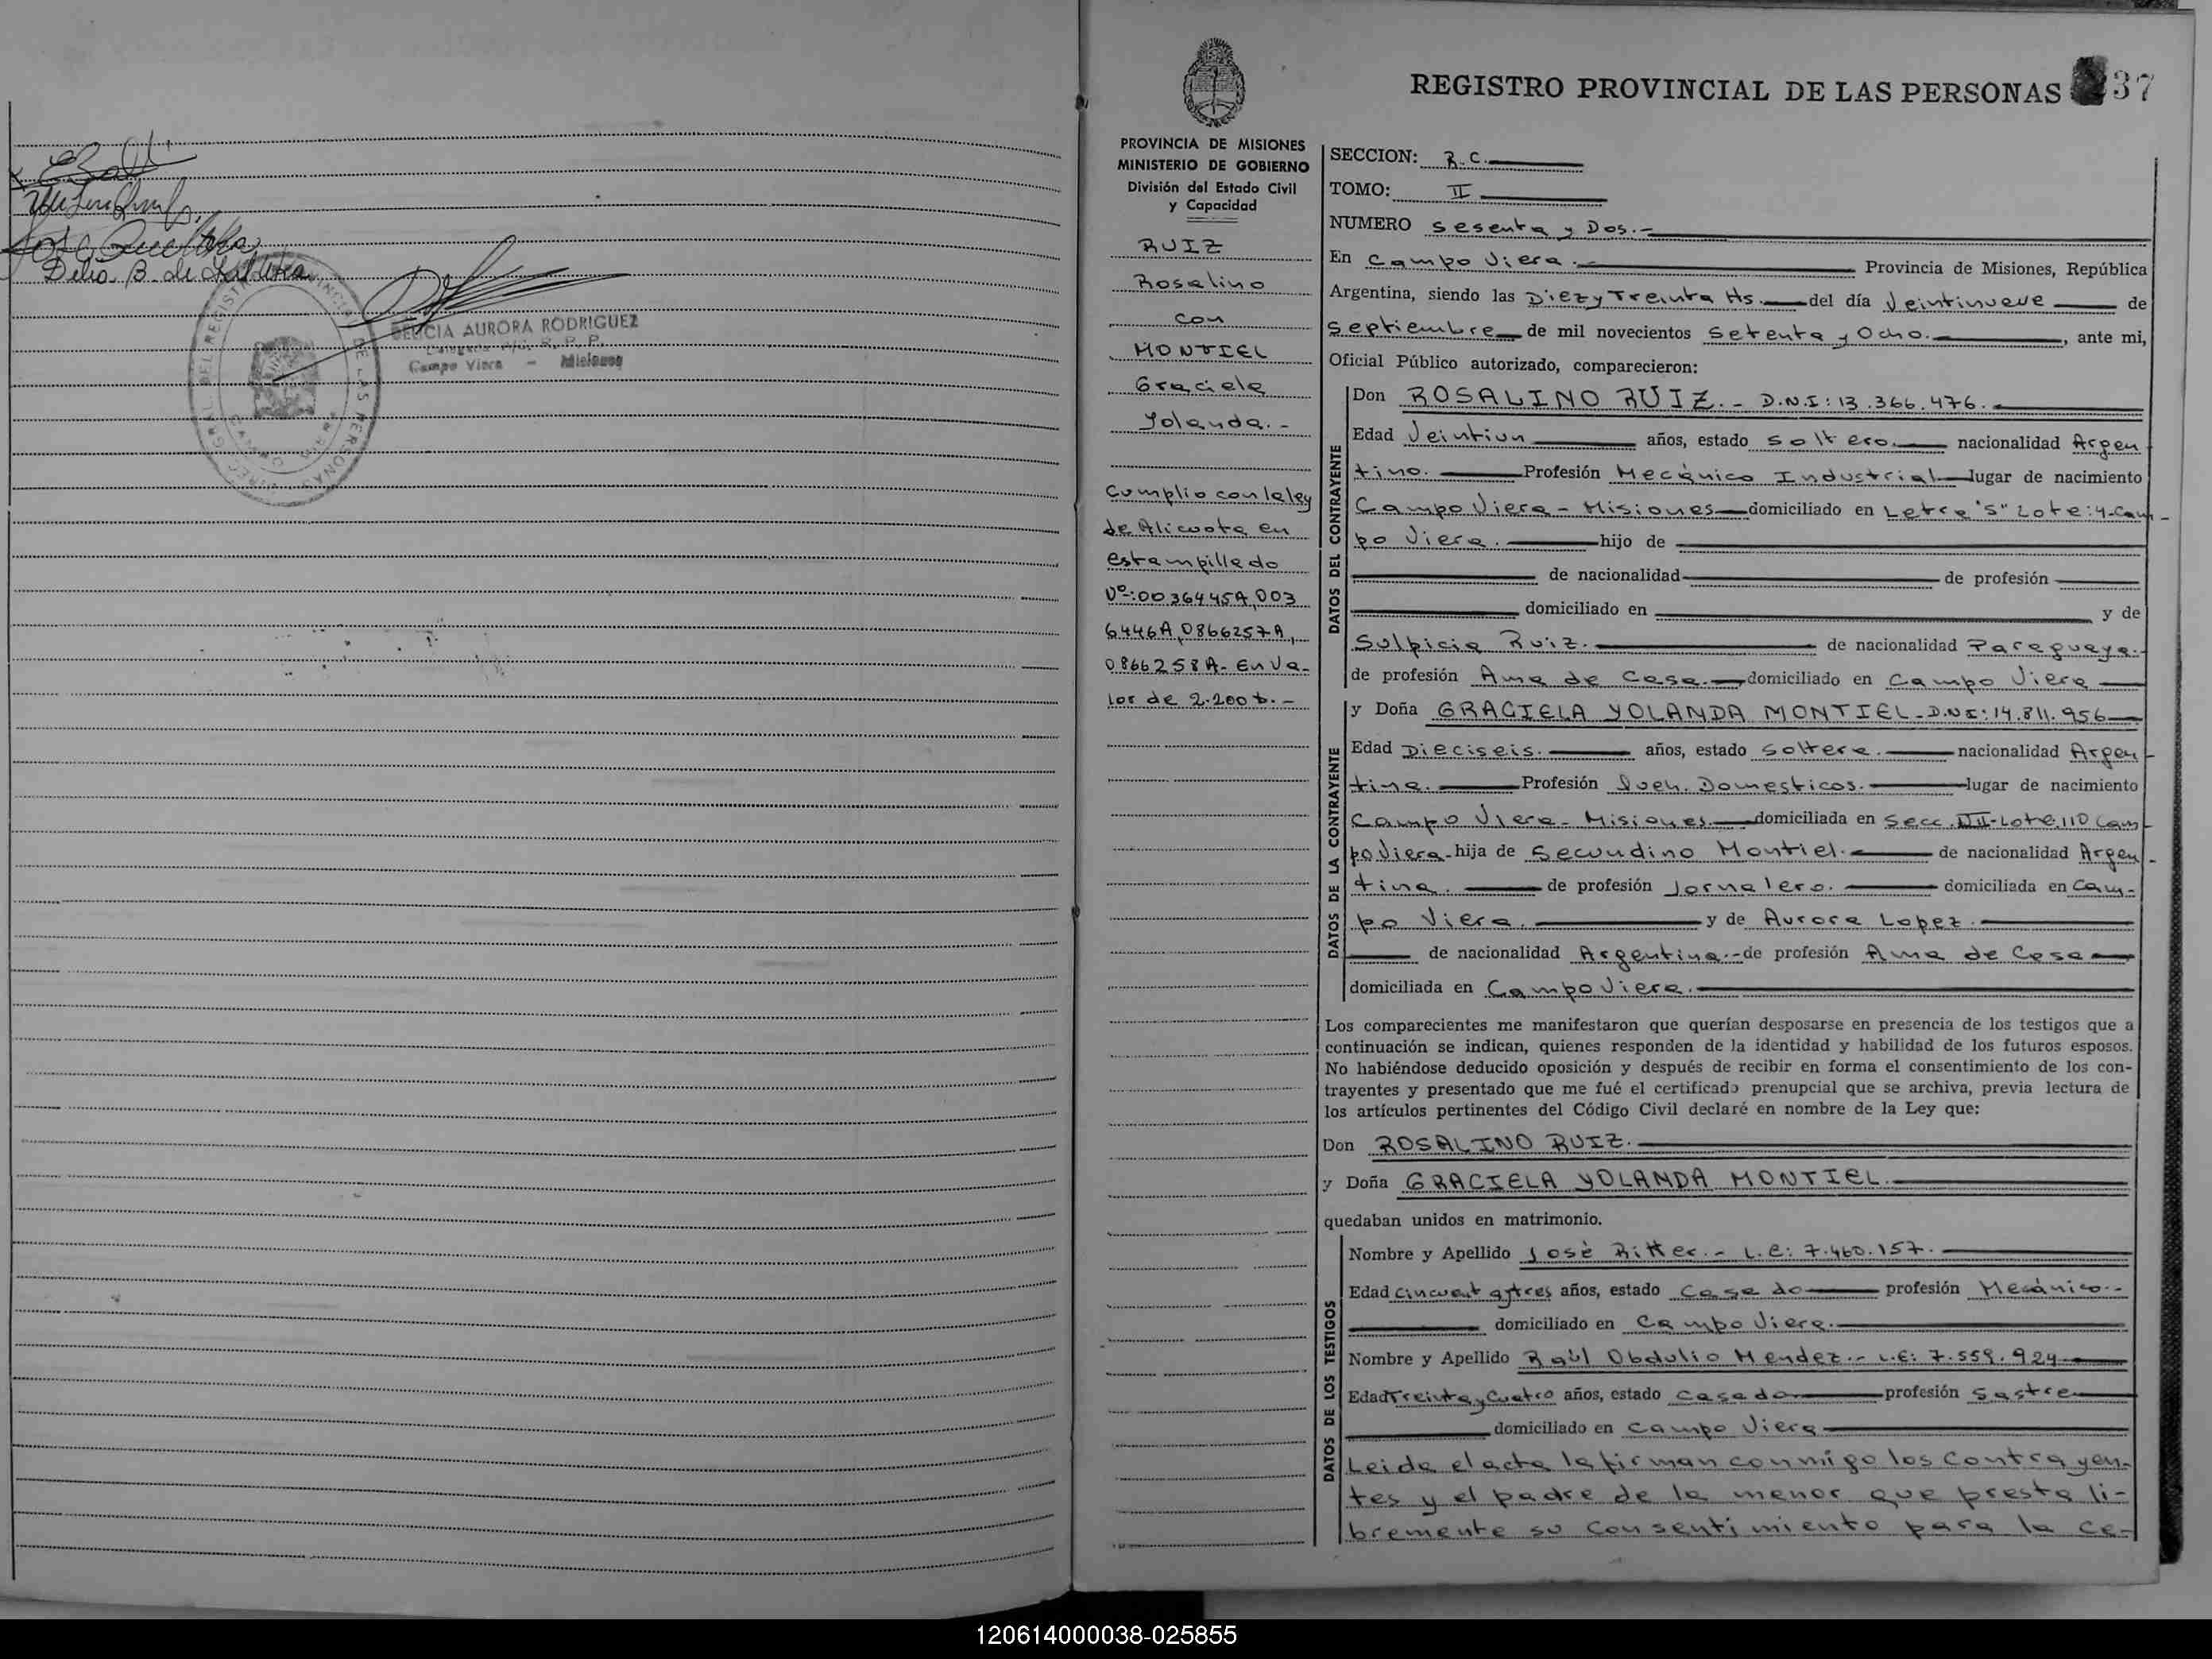 Delia B. de
DELICIA AURORA RODRIGUEZ
Campo Viera - Misiones
REGISTRO PROVINCIAL DE LAS PERSONAS 37
PROVINCIA DE MISIONES
MINISTERIO DE GOBIERNO
División del Estado Civil
y Capacidad
RUIZ
Rosalino
con
MONTIEL
Graciela
Yolanda.-
Cumplio con la ley
de Alicuota en
estampillado
Nº:0036445A,003
6446A,0866257A,
0866258A- En Va-
lor de 2.200 $.-
SECCION: R.C.
TOMO: II
NUMERO Sesenta y Dos.-
En Campo Viera.- Provincia de Misiones, República
Argentina, siendo las Diez y Treinta Hs. del día Veintinueve de
Septiembre de mil novecientos Setenta y Ocho. , ante mi,
Oficial Público autorizado, comparecieron:
DATOS DEL CONTRAYENTE
Don ROSALINO RUIZ.- D.N.I: 13.366.476.
Edad Veintiun años, estado soltero. nacionalidad Argen
tino. Profesión Mecánico Industrial lugar de nacimiento
Campo Viera - Misiones domiciliado en Letra "S" Lote:4-Cam-
po Viera. hijo de
de nacionalidad de profesión
domiciliado en y de
Sulpicia Ruiz. de nacionalidad Paraguaya.
de profesión Ama de Casa. domiciliado en Campo Viera
DATOS DE LA CONTRAYENTE
y Doña GRACIELA YOLANDA MONTIEL.- D.N.I: 14.811.956
Edad Dieciseis. años, estado Soltera. nacionalidad Argen-
tina. Profesión Queh. Domesticos. lugar de nacimiento
Campo Viera - Misiones domiciliada en Secc. Lote.110 Cam-
po Viera hija de Secundino Montiel. de nacionalidad Argen-
tina. de profesión Jornalero. domiciliada en Cam-
po Viera. y de Aurora Lopez.
de nacionalidad Argentina.- de profesión Ama de Casa
domiciliada en Campo Viera.
Los comparecientes me manifestaron que querían desposarse en presencia de los testigos que a
continuación se indican, quienes responden de la identidad y habilidad de los futuros esposos.
No habiéndose deducido oposición y después de recibir en forma el consentimiento de los con-
trayentes y presentado que me fué el certificado prenupcial que se archiva, previa lectura de
los artículos pertinentes del Código Civil declaré en nombre de la Ley que:
Don ROSALINO RUIZ.
y Doña GRACIELA YOLANDA MONTIEL.
quedaban unidos en matrimonio.
DATOS DE LOS TESTIGOS
Nombre y Apellido José Ritter.- L.E: 7.460.157.
Edad Cincuent aytres años, estado Casado profesión Mecánico.-
domiciliado en Campo Viera.
Nombre y Apellido Raúl Obdulio Mendez.- L.E: 7.559.924
Edad Treinta y Cuatro años, estado Casado profesión Sastre
domiciliado en Campo Viera
Leida el acta la firman conmigo los contrayen-
tes y el padre de la menor que presta li-
bremente su consentimiento para la ce-
120614000038-025855